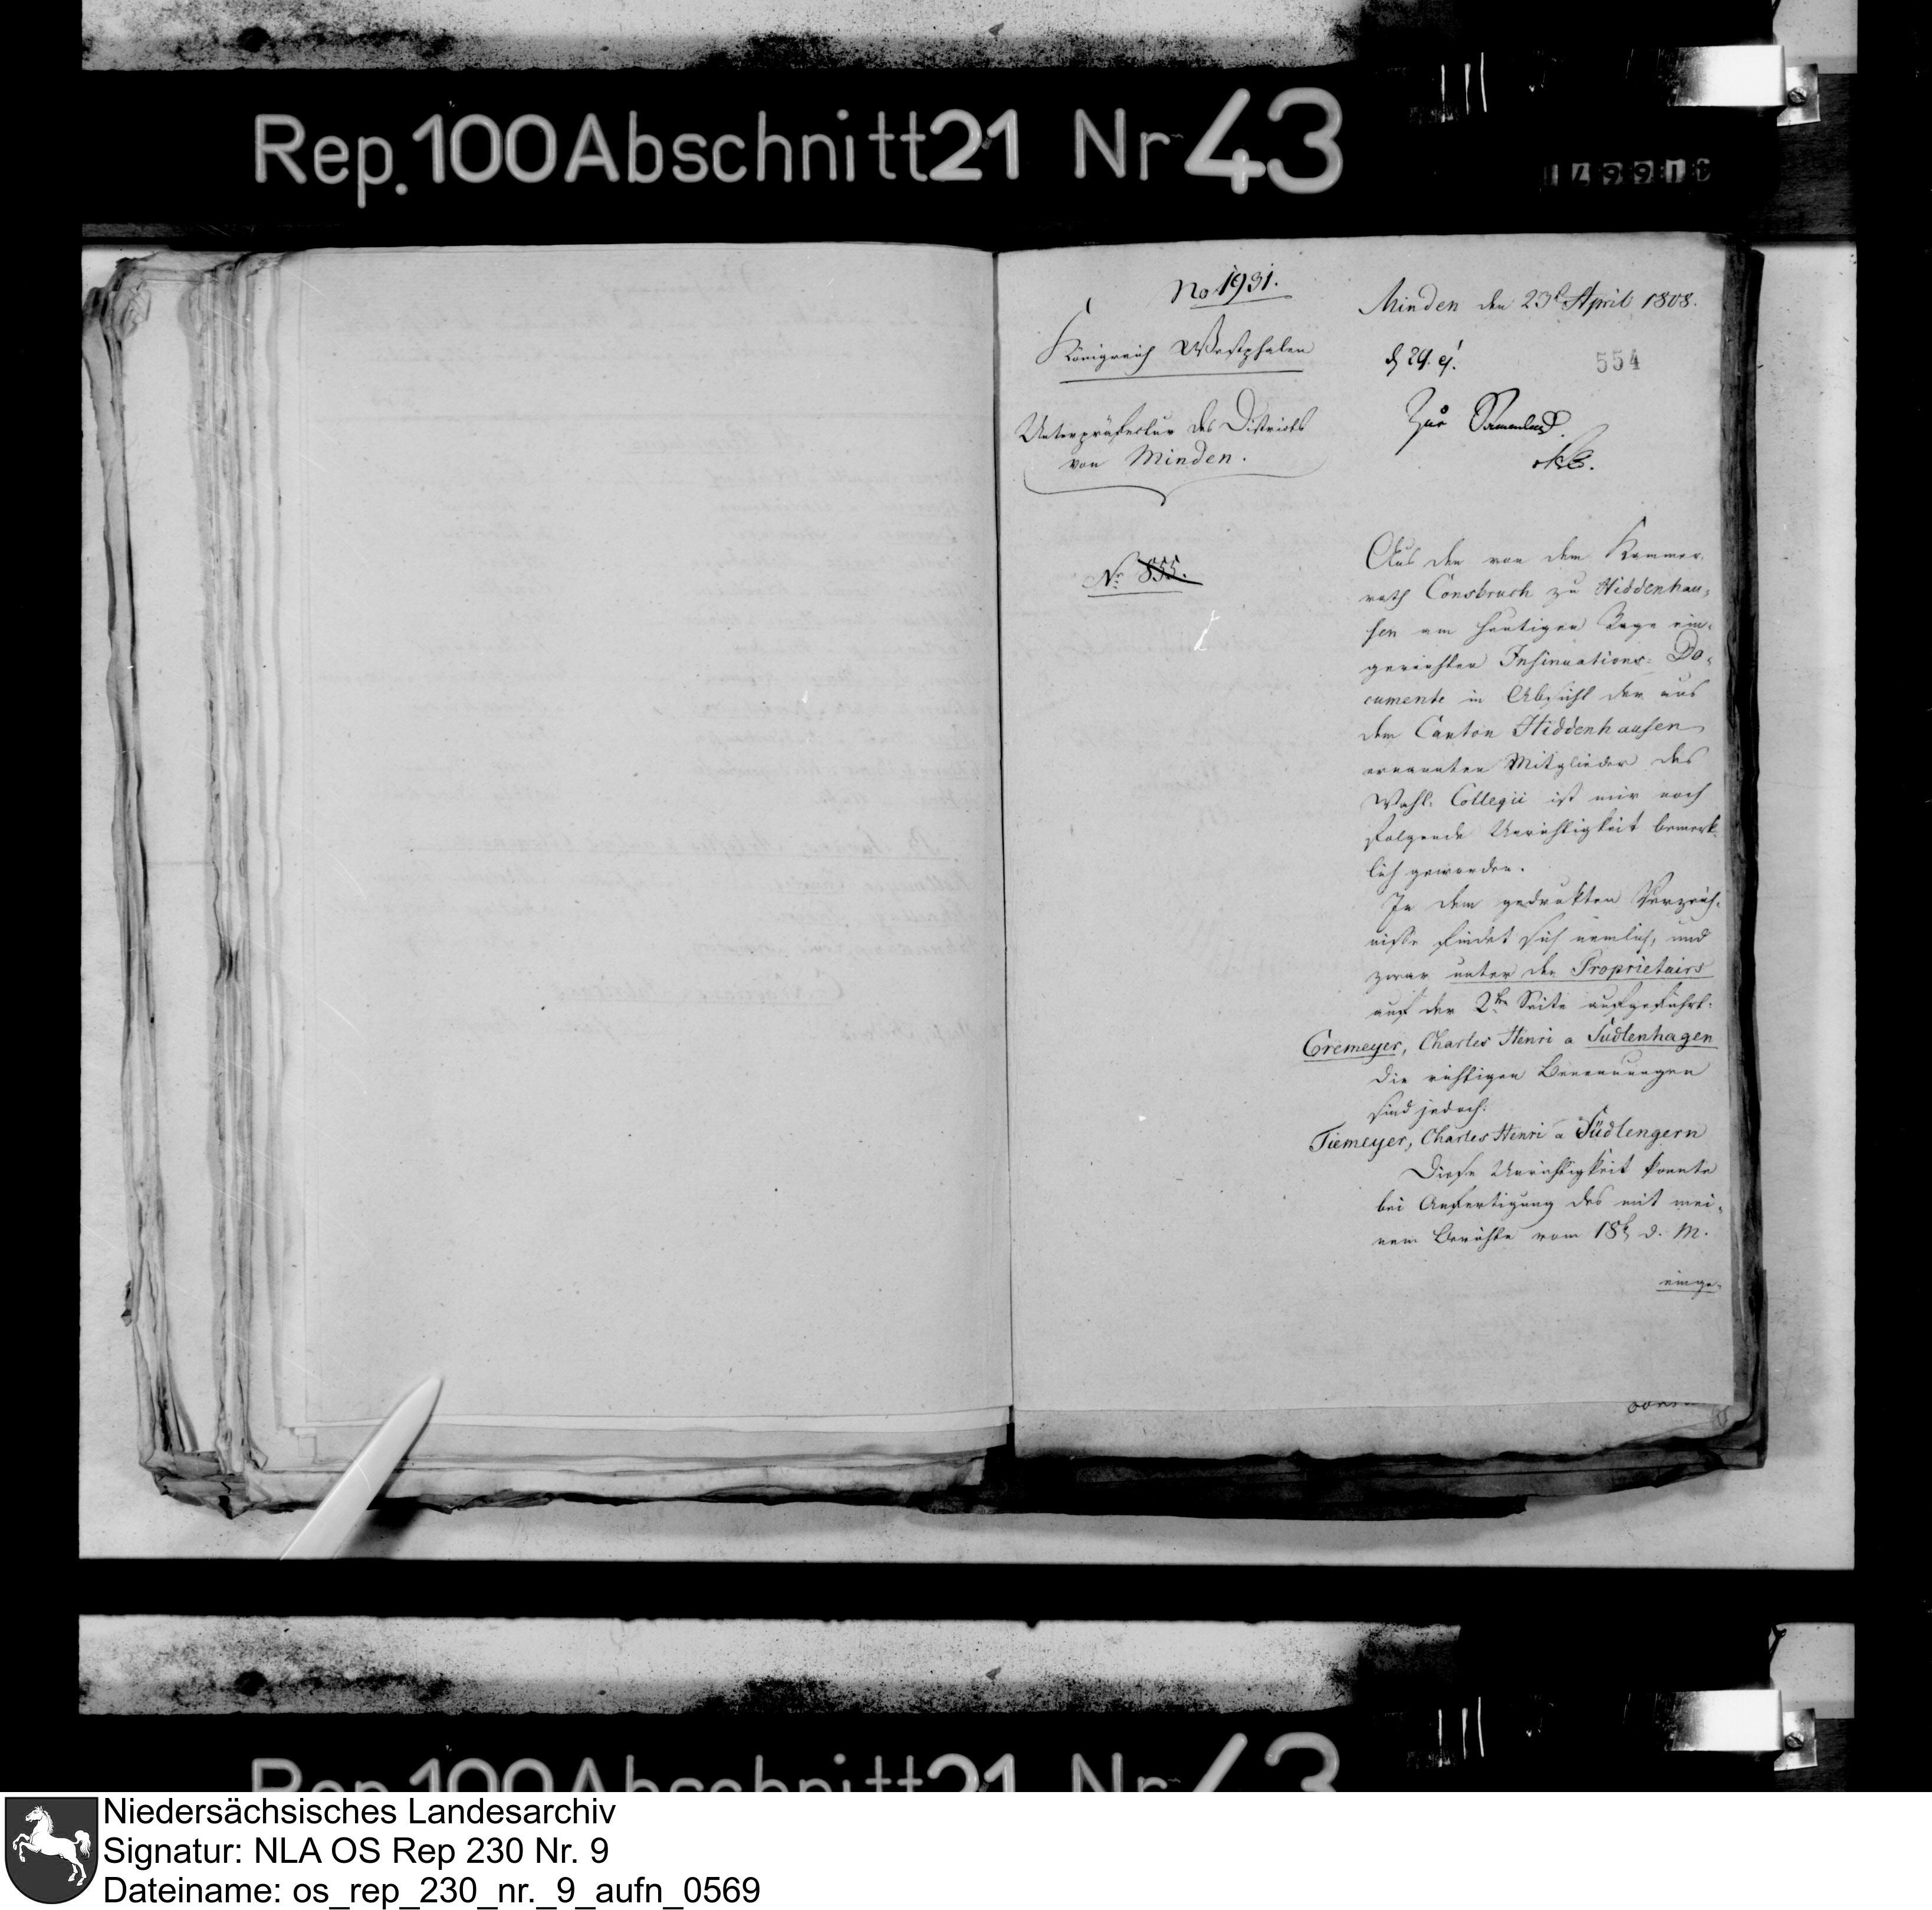 Rep. 100 Abschnitt 21 Nr 43
No 1931.
Königreich Westphalen
Unterpräfectur des Districts
von Minden.
Nr. 855.
Minden den 23t April 1808.
554
Aus den von dem Kammer-
rath Consbruch zu Hiddenhau-
sen am heutigen Tage ein-
gereichten Insinuations-Do-
cumente in Absicht der aus
dem Canton Hiddenhausen
ernannten Mitglieder des
Wahl-Collegii ist mir noch
folgende Unrichtigkeit bemerk-
lich geworden.
In dem gedrukten Verzeich-
nisse findet sich nemlich, und
zwar unter den Proprietairs
auf der 2ten Seite aufgeführt:
Cremeyer, Charles Henri a Sudlenhagen
die richtigen Benennungen
sind jedoch:
Tiemeyer, Charles Henri a Südlengern
Diese Unrichtigkeit konnte
bei Anfertigung des mit mei-
nem Berichte vom 18t d. M.
einge-
Rep. 100 Abschnitt 21 Nr 43
Niedersächsisches Landesarchiv
Signatur: NLA OS Rep 230 Nr. 9
Dateiname: os_rep_230_nr._9_aufn_0569